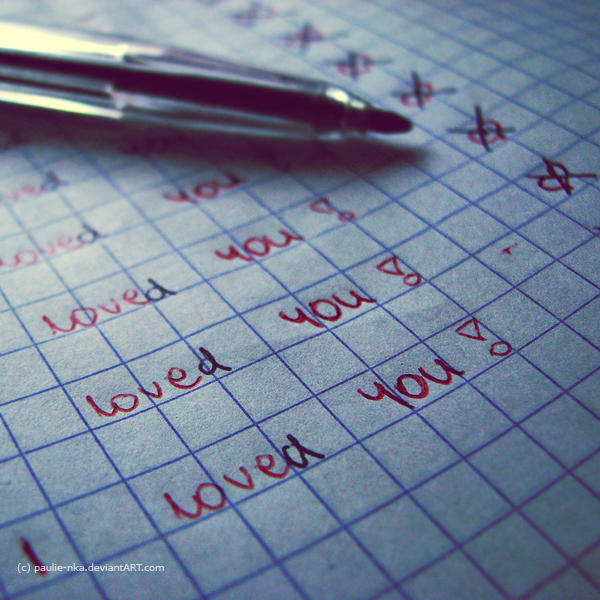 loved you
loved you!
loved you!
loved you!
I loved you!
(c) paulie-nka.deviantART.com